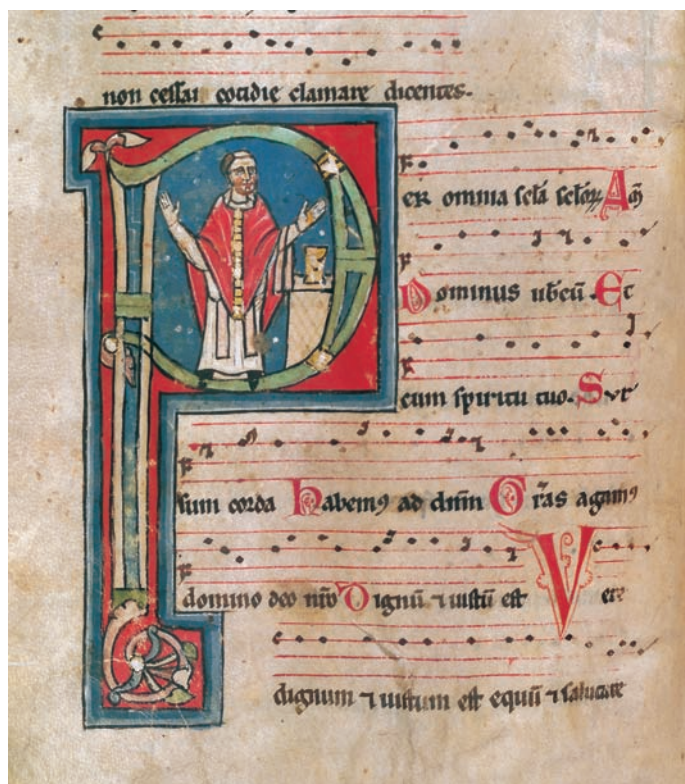 non cessat cotidie clamare dicentes.
P
er omnia sclā sclōꝝ Am̄
Dominus ubcū. Et
cum spiritu tuo. Sur
sum corda habemꝰ ad dnm Grās agimꝰ
domino deo nr̄o Dignū ⁊ iustū est Vere
dignum ⁊ iustum est equū ⁊ salutare